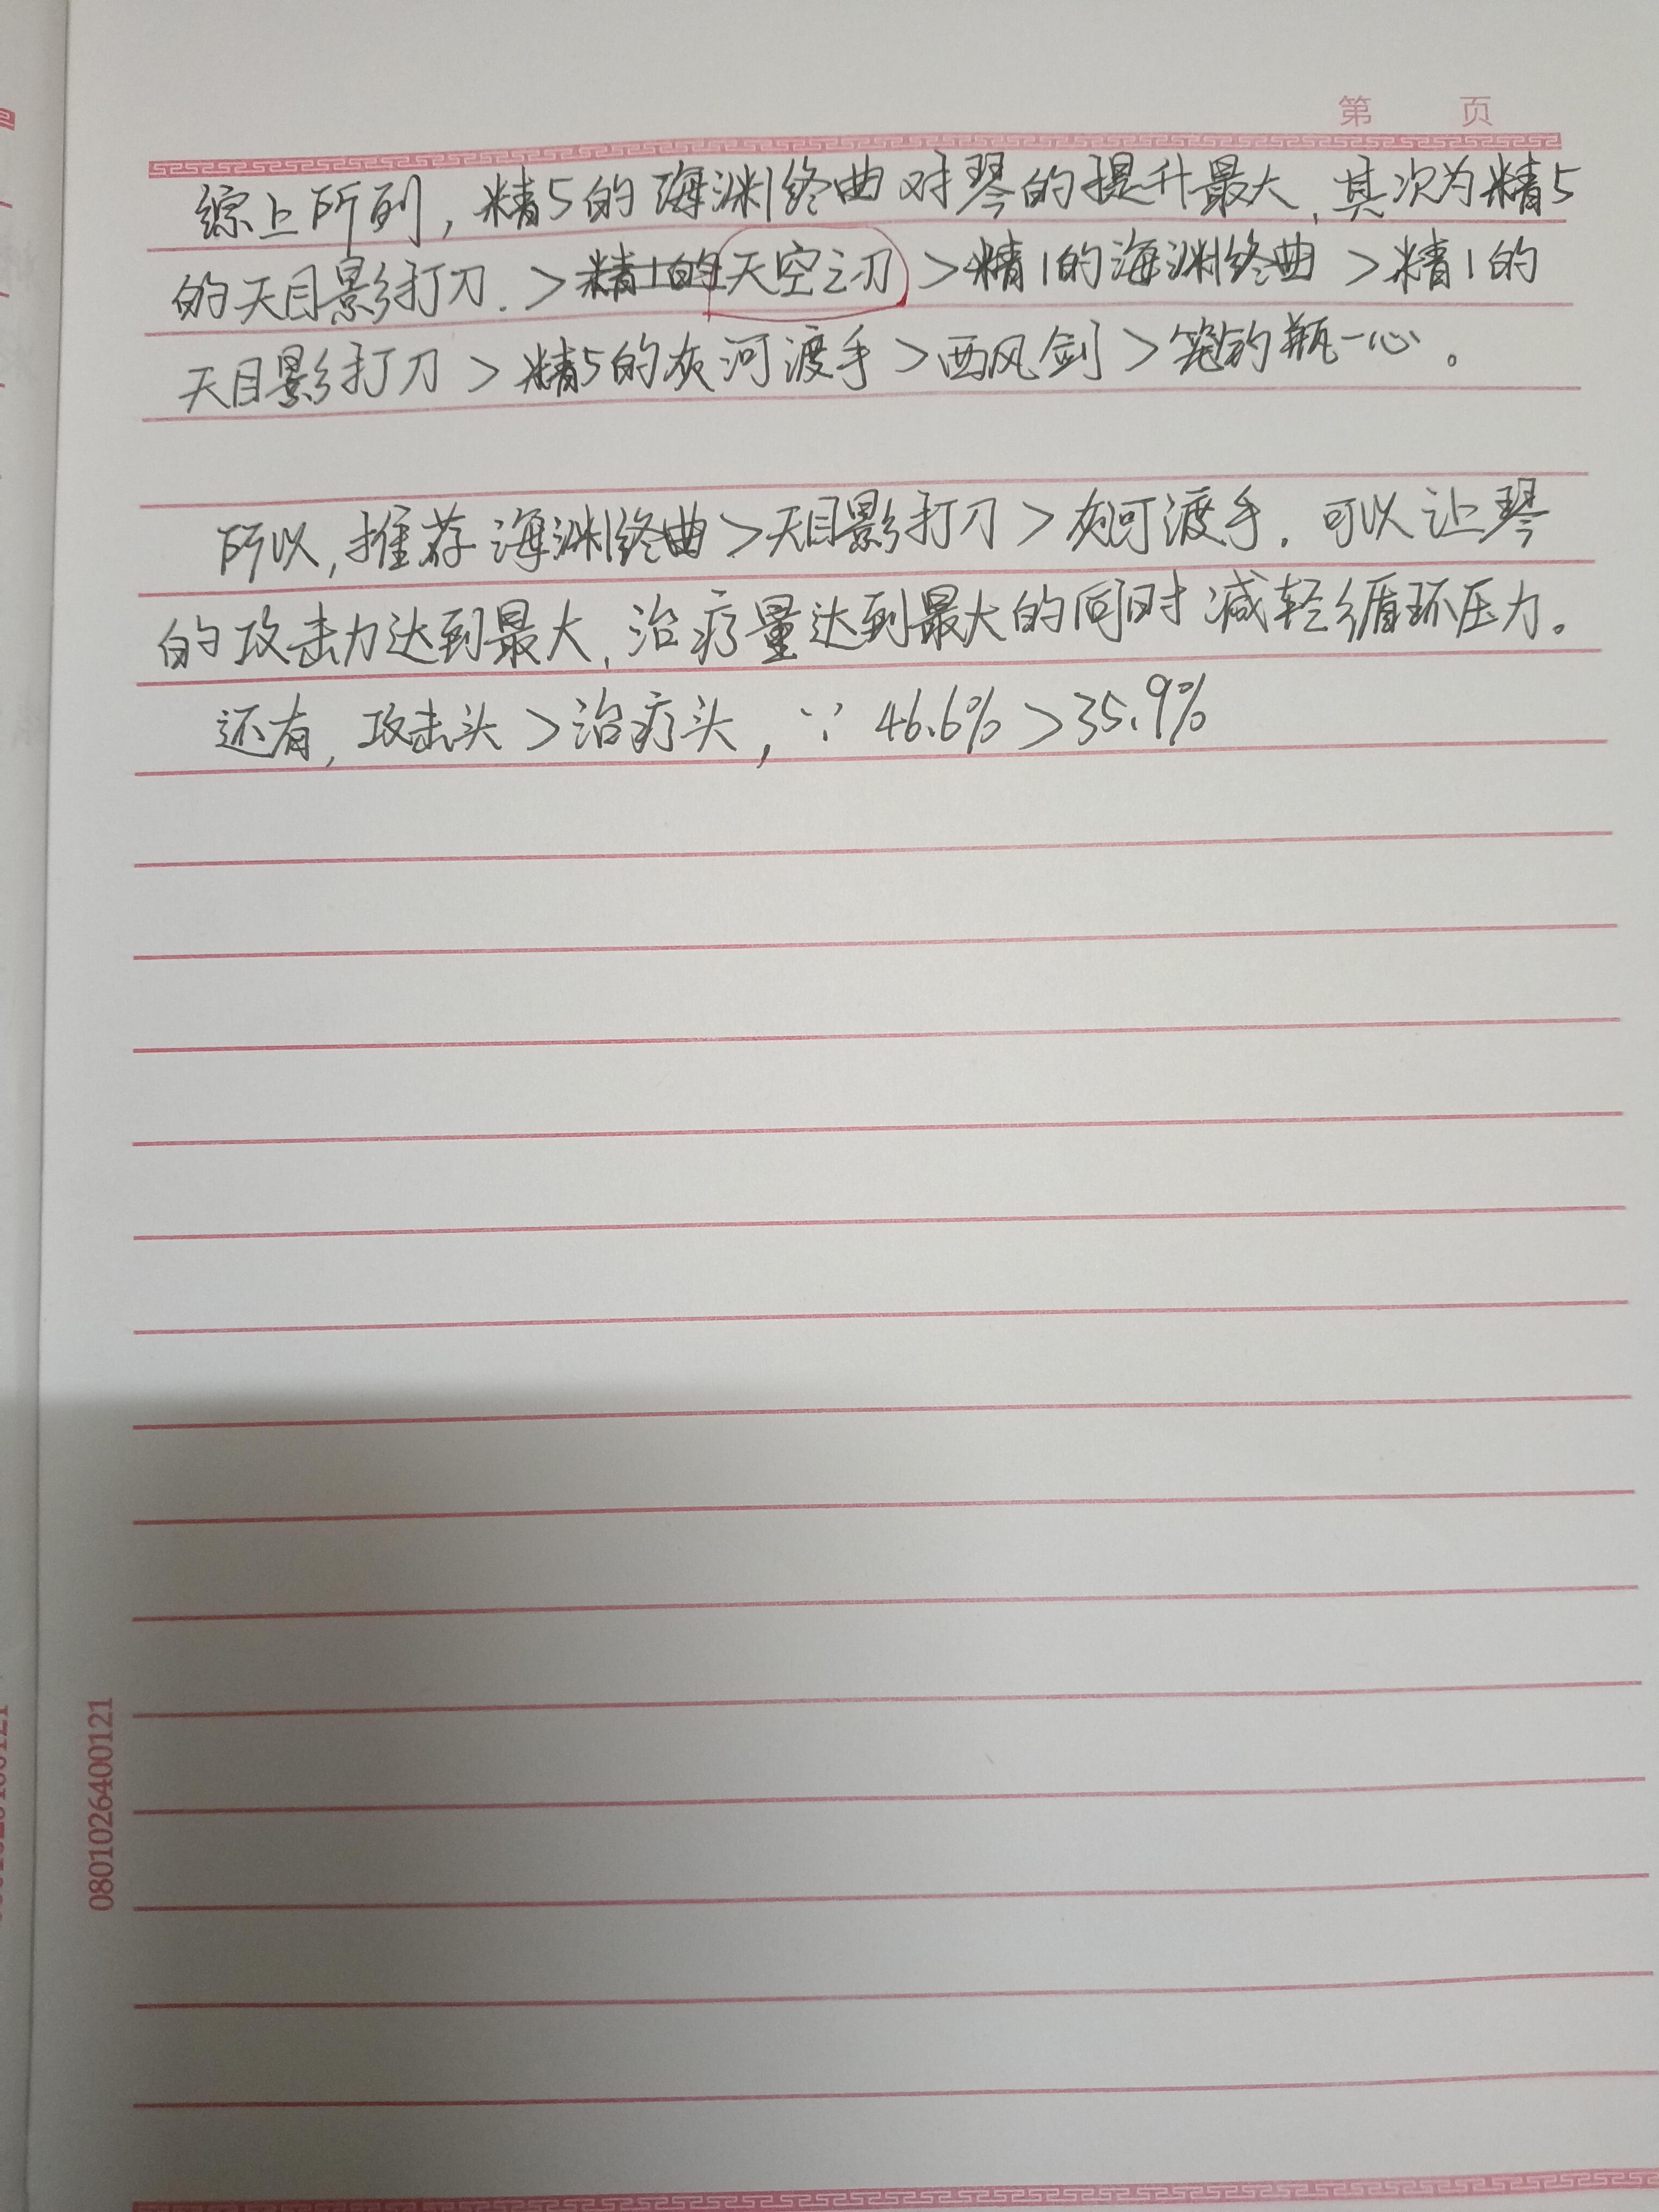 第 页
综上所列，精5的海渊终曲对琴的提升最大，其次为精5
的天目影打刀．＞精1的天空之刃＞精1的海渊终曲＞精1的
天目影打刀＞精5的灰河渡手＞西风剑＞笼钓瓶一心。
所以，推荐海渊终曲＞天目影打刀＞灰河渡手．可以让琴
的攻击力达到最大，治疗量达到最大的同时减轻循环压力。
还有，攻击头＞治疗头，∵ 46.6%＞35.9%
0801026400121